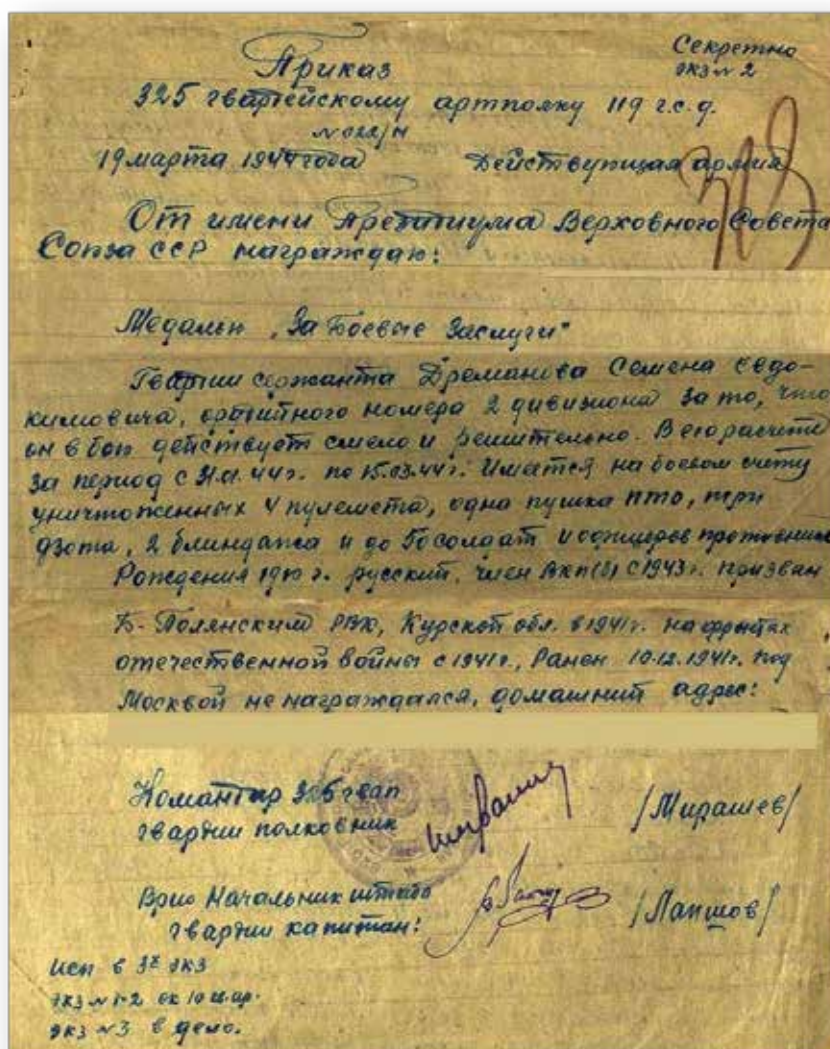 Секретно
экз № 2
Приказ
325 гвардейскому артполку 119 г.с.д.
19 марта 1944 года Действующая армия
От имени Президиума Верховного Совета
Союза ССР награждаю:
Медалью "За Боевые Заслуги"
Гвардии сержанта Дреманова Семена Евдо-
кимовича, орудийного номера 2 дивизиона за то, что
он в бою действует смело и решительно. В его расчете
за период с 31.01.44 г. по 15.03.44 г. имеется на боевом счету
уничтоженных 4 пулемета, одна пушка ПТО, три
дзота, 2 блиндажа и до солдат и офицеров противника
Рождения 1910 г. русский, член ВКП(б) с 1943 г. призван
Б-Полянским РВК, Курской обл. в 1941 г. на фронтах
отечественной войны с 1941 г., Ранен 10.12.1941 г. под
Москвой не награждался, домашний адрес:
Командир 325 гвап
гвардии полковник /Мирашев/
Врио Начальник штаба
гвардии капитан: /Лапшов/
исп в 3х экз
экз № 1-2
экз № 3 в дело.